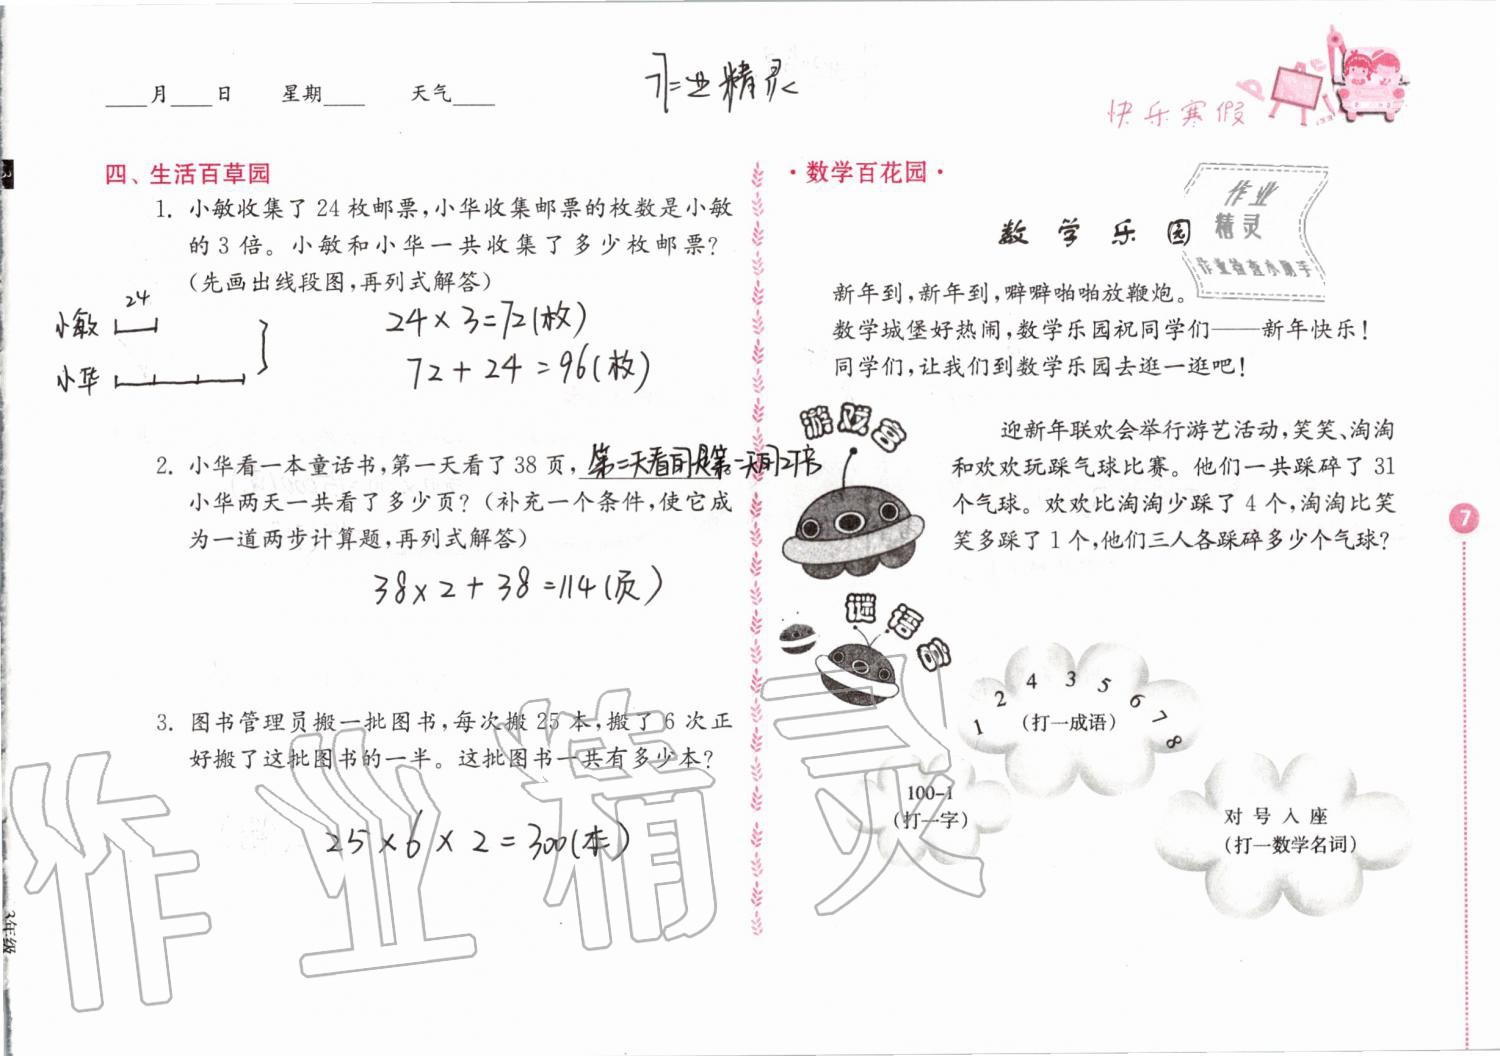 ____月____日 星期____ 天气____
快乐寒假
四、生活百草园
1. 小敏收集了 24 枚邮票，小华收集邮票的枚数是小敏
的 3 倍。小敏和小华一共收集了多少枚邮票？
（先画出线段图，再列式解答）
24
小敏
小华
24×3=72(枚)
72+24=96(枚)
2. 小华看一本童话书，第一天看了 38 页，
小华两天一共看了多少页？（补充一个条件，使它成
为一道两步计算题，再列式解答）
38×2+38=114(页)
3. 图书管理员搬一批图书，每次搬 25 本，搬了 6 次正
好搬了这批图书的一半。这批图书一共有多少本？
25×6×2=300(本)
·数学百花园·
作业
精灵
作业检查小助手
数学乐园
新年到，新年到，噼噼啪啪放鞭炮。
数学城堡好热闹，数学乐园祝同学们——新年快乐！
同学们，让我们到数学乐园去逛一逛吧！
游戏宫
迎新年联欢会举行游艺活动，笑笑、淘淘
和欢欢玩踩气球比赛。他们一共踩碎了 31
个气球。欢欢比淘淘少踩了 4 个，淘淘比笑
笑多踩了 1 个，他们三人各踩碎多少个气球？
谜语宫
1 2 4 3 5 6 7 8
（打一成语）
100-1
（打一字）
对号入座
（打一数学名词）
7
3年级
作业精灵